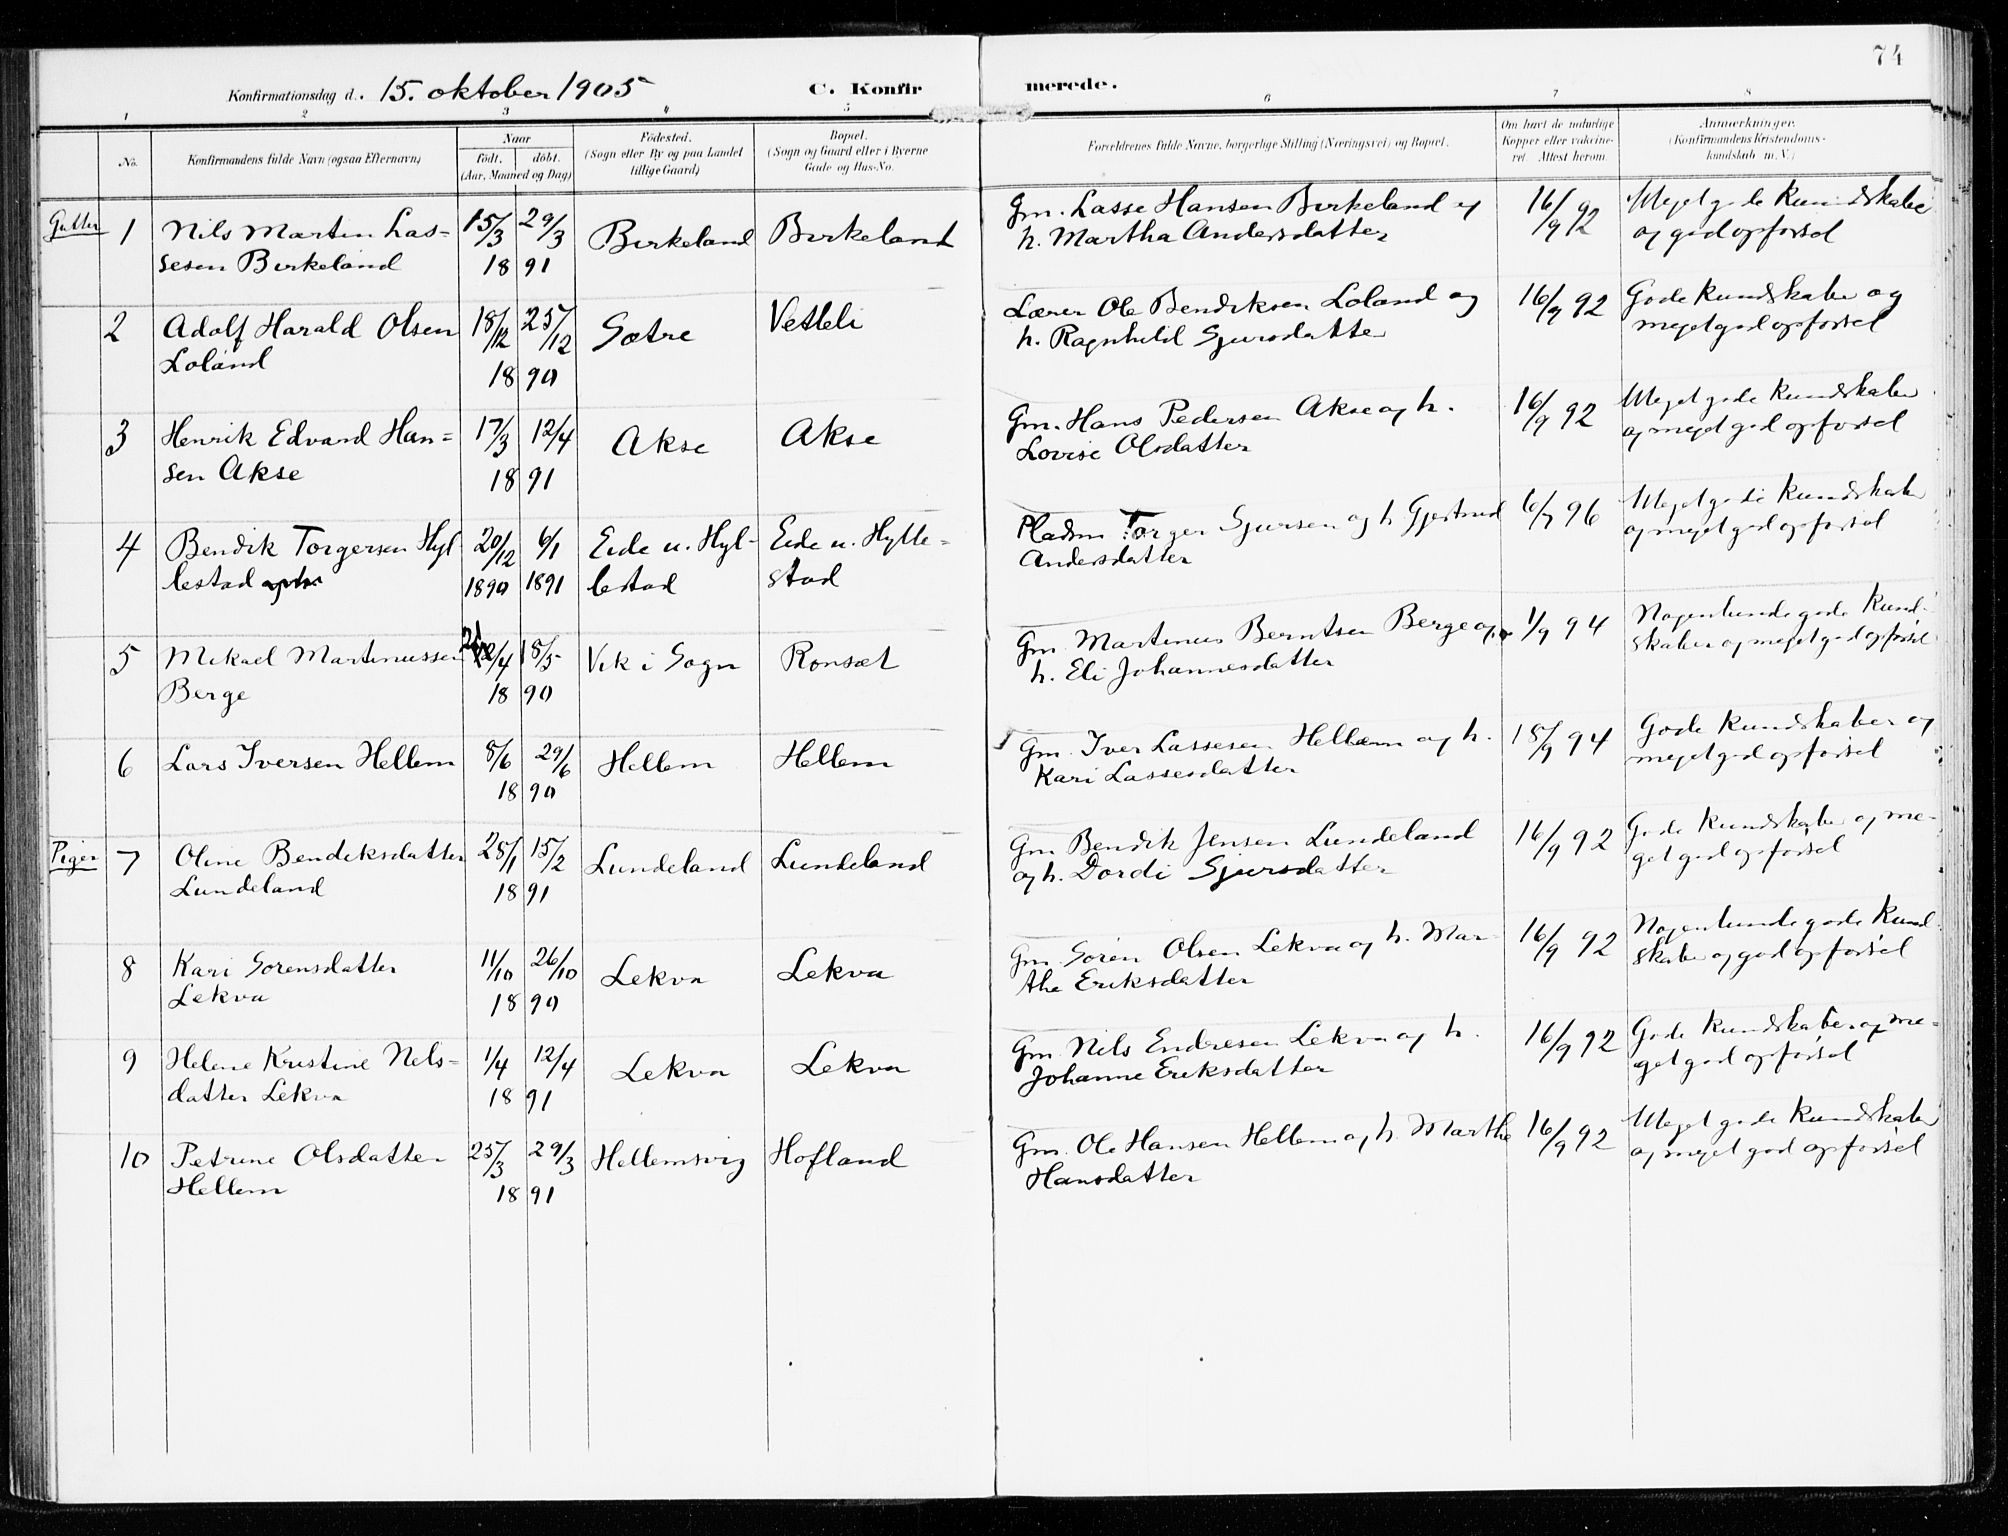 74
Konfirmationsdag d. 15. oktober 1905
C. Konfirmerede.
1 2 3 4 5 6 7 8
No.
Konfirmandens fulde Navn (ogsaa Efternavn)
Naar
födt. döbt.
(Aar, Maaned og Dag)
Födested.
(Sogn eller By og paa Landet
tillige Gaard)
Bopæl.
(Sogn og Gaard eller i Byerne
Gade og Hus-No.
Forældrenes fulde Navne, borgerlige Stilling (Næringsvei) og Bopæl.
Om havt de naturlige
Kopper eller vakcine-
ret Attest herom.
Anmærkninger.
(Konfirmandens Kristendoms-
kundskab m. V.)
Gutter 1 Nils Martin Las= 15/3 29/3 Birkeland Birkeland Gm. Lasse Hansen Birkeland og 16/9 92 Meget gode kundskaber
sesen Birkeland 18 91 h. Martha Andersdatter og god opførsel
2 Adolf Harald Olsen 18/12 25/12 Sætre Vetleli Lærer Ole Bendiksen Loland og 16/9 92 Gode kundskaber og
Loland 18 90 h. Ragnhild Sjursdatter meget god opførsel
3 Henrik Edvard Han= 17/3 12/4 Akse Akse Gm. Hans Pedersen Akse og h. 16/9 92 Meget gode kundskaber
sen Akse 18 91 Lovise Olsdatter og meget god opførsel
4 Bendik Torgersen Hyl 20/12 6/1 Eide u. Hyl- Eide u. Hylle= Pladsm. Torger Sjursen og h. Gjertrud 6/7 96 Meget gode kundskaber
lestad 1890 1891 lestad stad Andersdatter og meget god opførsel
5 Mikael Martinussen 18/5 Vik i Sogn Ronset Gm. Martinus Berntsen Berge og 1/9 94 Nogenlunde gode kund-
Berge 18 90 h. Eli Johannesdatter skaber og meget god opførsel
6 Lars Iversen Hellem 8/6 29/6 Hellem Hellem Gm. Iver Lassesen Hellem og h. 18/9 94 Gode kundskaber og
18 90 Kari Lassesdatter meget god opførsel
Piger 7 Oline Bendiksdatter 28/1 15/2 Lundeland Lundeland Gm Bendik Jensen Lundeland 16/9 92 Gode kundskaber og me-
Lundeland 18 91 og h. Dordi Sjursdatter get god opførsel
8 Kari Sørensdatter 11/10 26/10 Lekva Lekva Gm. Søren Olsen Lekva og h. Mar- 16/9 92 Nogenlunde gode kund-
Lekva 18 90 the Eriksdatter skaber og god opførsel
9 Helene Kristine Nils- 1/4 12/4 Lekva Lekva Gm. Nils Endresen Lekva og h. 16/9 92 Gode kundskaber og me-
datter Lekva 18 91 Johanne Eriksdatter get god opførsel
10 Petrine Olsdatter 25/3 29/3 Hellemsvig Hofland Gm. Ole Hansen Hellem og h. Marthe 16/9 92 Meget gode kundskaber
Hellem 18 91 Hansdatter og meget god opførsel